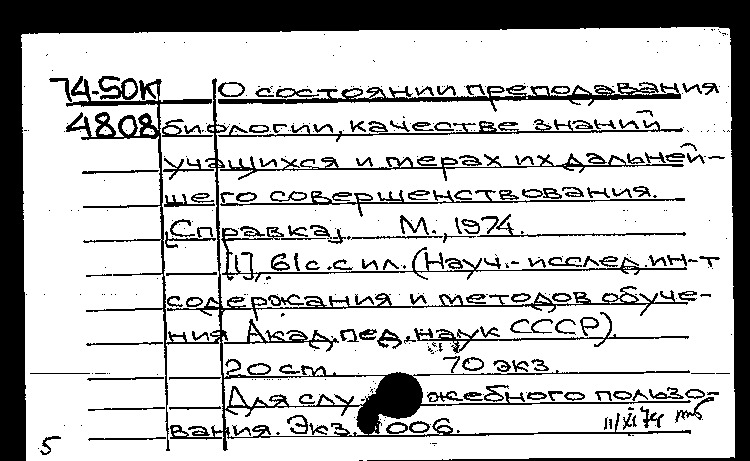 74-50к О состоянии преподавания
4808 биологии, качестве знаний
учащихся и мерах их дальней-
шего совершенствования.
[Справка]. М., 1974.
[1], 61 с. с ил. (Науч.-исслед. ин-т
содержания и методов обуче-
ния Акад. пед. наук СССР).
20 см. 70 экз.
Для служебного пользо-
вания. Экз. 006.
11/XI 74
5